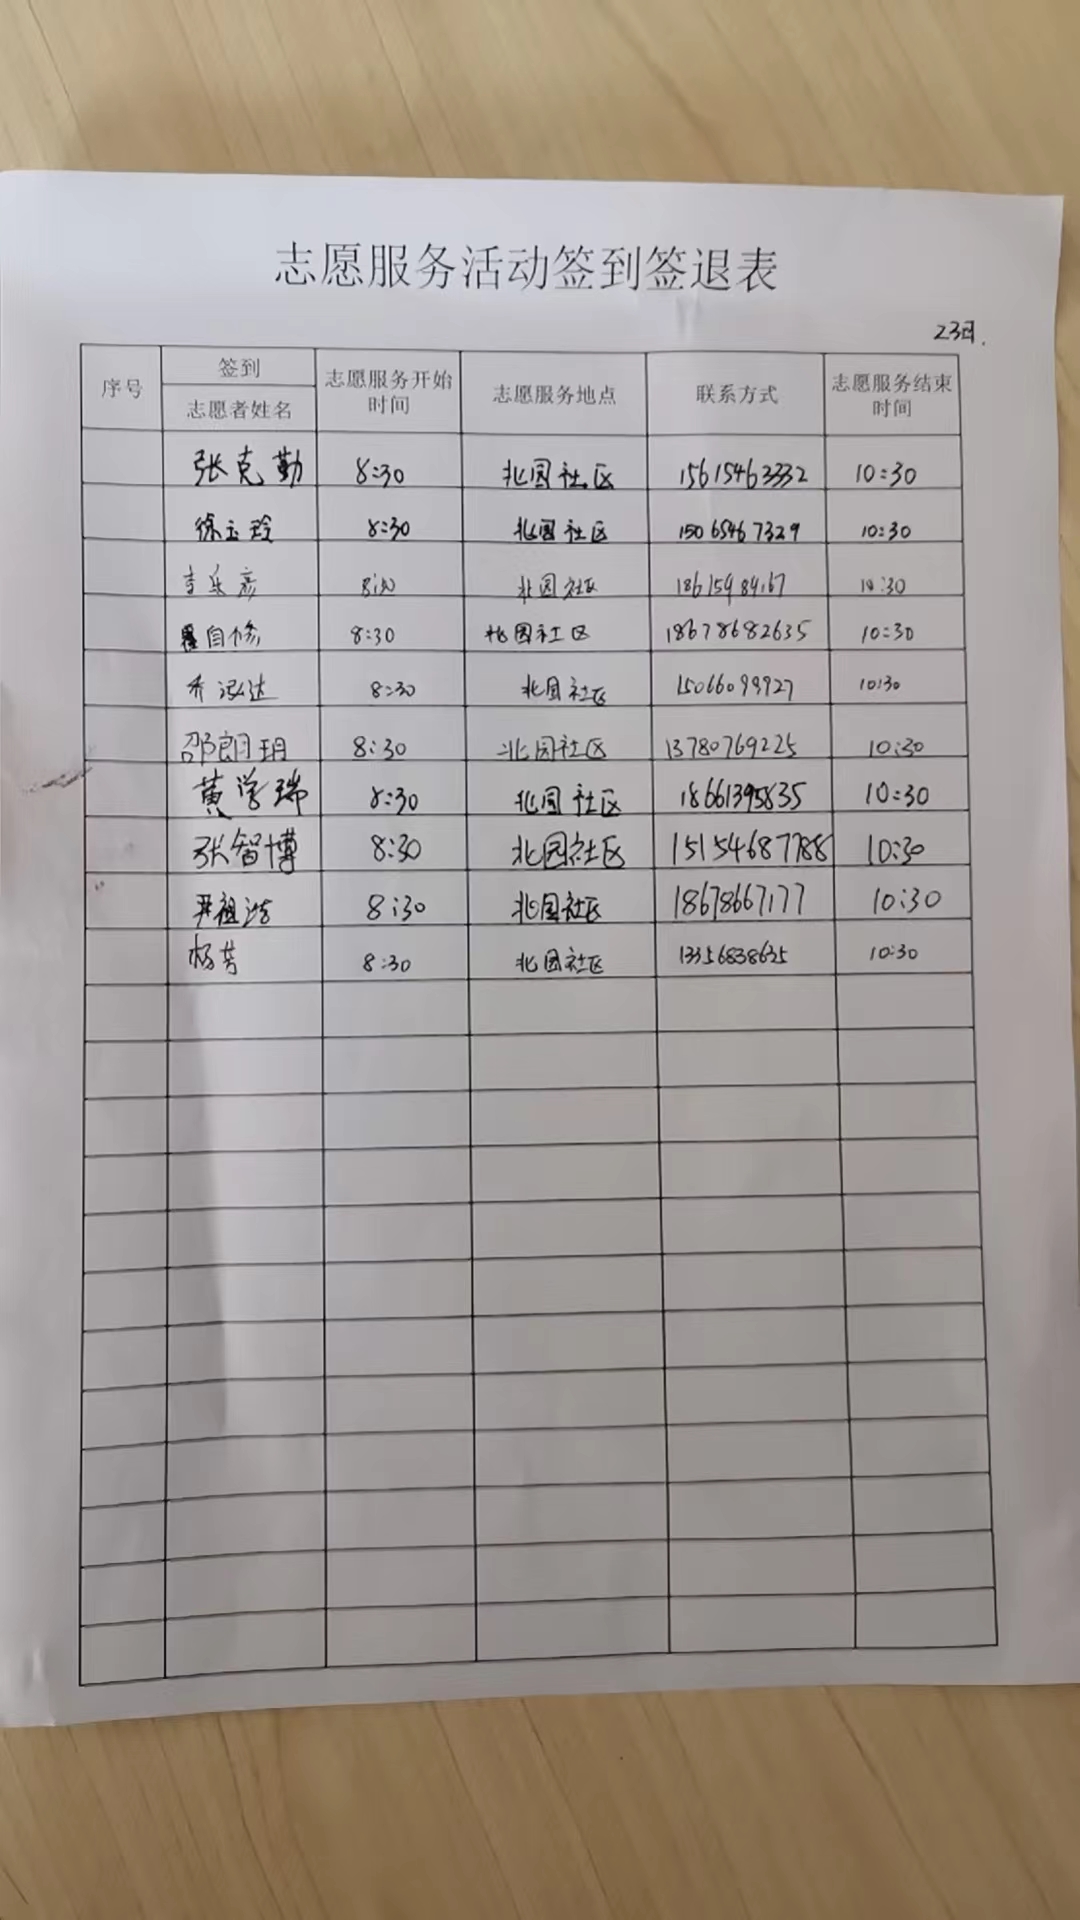 志愿服务活动签到签退表
23日.
序号 签到 志愿者姓名 志愿服务开始时间 志愿服务地点 联系方式 志愿服务结束时间
张克勤 8:30 北园社区 15615463332 10:30
徐玉玲 8:30 北园社区 15065467329 10:30
李乐彦 8:30 北园社区 10:30
自修 8:30 北园社区 18678682635 10:30
乔泓达 8:30 北园社区 15066099927 10:30
邵朗玥 8:30 北园社区 13780769225 10:30
黄学瑞 8:30 北园社区 18661395835 10:30
张智博 8:30 北园社区 15154687788 10:30
尹祖浩 8:30 北园社区 18678667177 10:30
杨芳 8:30 北园社区 13356838635 10:30